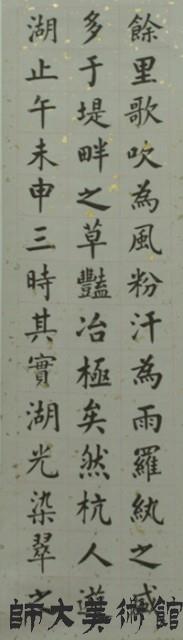 餘里歌吹為風粉汗為雨羅紈之盛
多于堤畔之草豔冶極矣然杭人遊
湖止午未申三時其實湖光染翠之
師大美術館